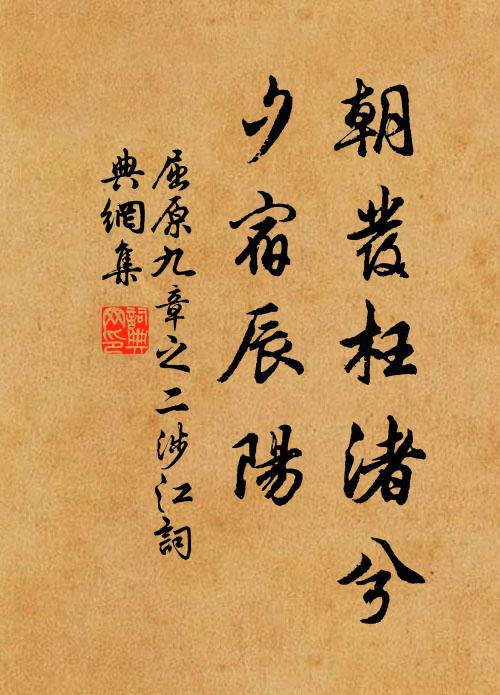 朝發枉渚兮
夕宿辰陽
屈原九章之二涉江詞
典網集
詞典網印